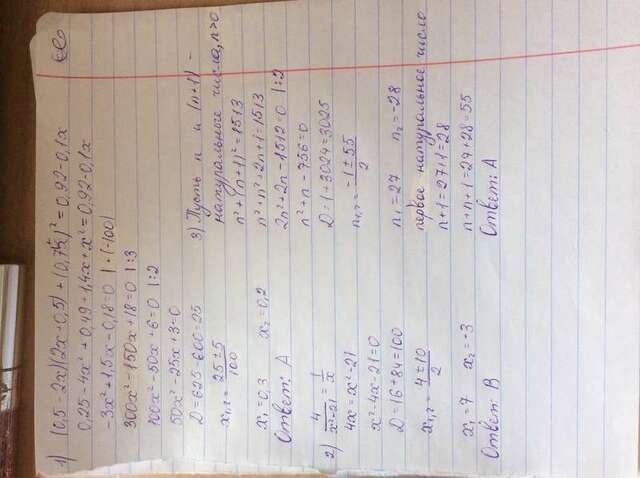 1) (0,5-2x)(2x+0,5)+(0,7-x)²=0,92-0,1x
0,25-4x²+0,49-1,4x+x²=0,92-0,1x
-3x²+1,5x-0,18=0 |·(-100)
300x²-150x+18=0 |:3
100x²-50x+6=0 |:2
50x²-25x+3=0
D=625-600=25
x₁,₂=(25±5)/100
x₁=0,3 x₂=0,2
Ответ: А
2) 4/(x²-21)=1/x
4x=x²-21
x²-4x-21=0
D=16+84=100
x₁,₂=(4±10)/2
x₁=7 x₂=-3
Ответ: В
3) Пусть n и (n+1) -
натуральные числа, n>0
n²+(n+1)²=1513
n²+n²+2n+1=1513
2n²+2n-1512=0 |:2
n²+n-756=0
D=1+3024=3025
n₁,₂=(-1±55)/2
n₁=27 n₂=-28
первое натуральное число
n+1=27+1=28
n+n+1=27+28=55
Ответ: А